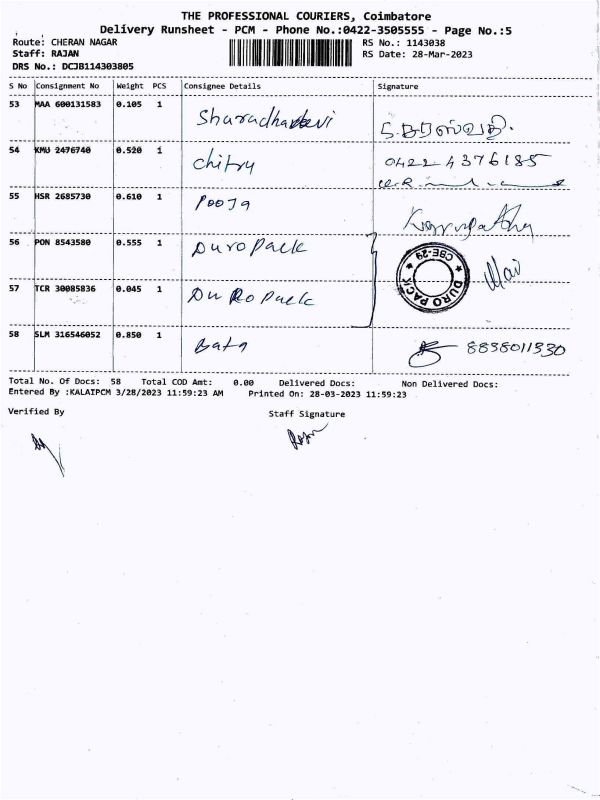 THE PROFESSIONAL COURIERS, Coimbatore
Delivery Runsheet - PCM - Phone No.:0422-3505555 - Page No.:5
Route: CHERAN NAGAR RS No.: 1143038
Staff: RAJAN RS Date: 28-Mar-2023
DRS No.: DCJB114303805
S No Consignment No Weight PCS Consignee Details Signature
53 MAA 600131583 0.105 1 Sharadhadevi
54 KMU 2476740 0.520 1 Chitry 0422 4376185
55 HSR 2685730 0.610 1 Pooja
56 PON 8543580 0.555 1 Duropack CBE-29
57 TCR 30085836 0.045 1 DuRopack DURO PACK
58 SLM 316546052 0.850 1 Bata 8838011330
Total No. Of Docs: 58 Total COD Amt: 0.00 Delivered Docs: Non Delivered Docs:
Entered By :KALAIPCM 3/28/2023 11:59:23 AM Printed On: 28-03-2023 11:59:23
Verified By Staff Signature